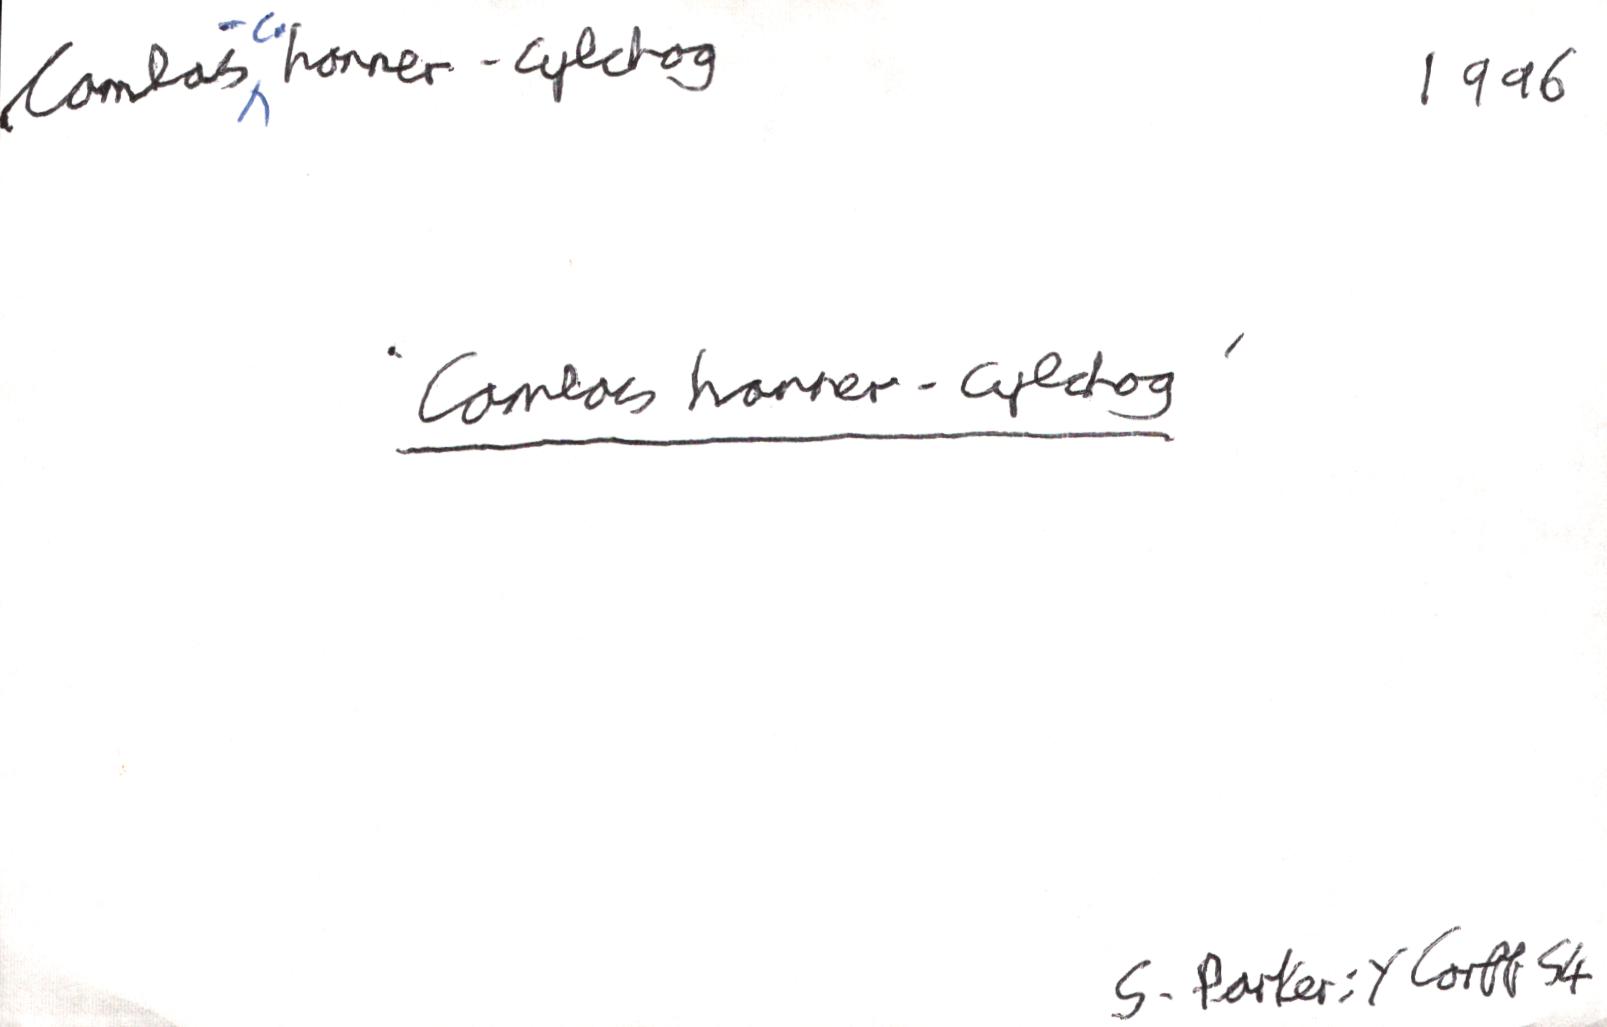 Camlas hanner-cylchog 1996
'Camlas hanner-cylchog'
S. Parker: Y Corff 54